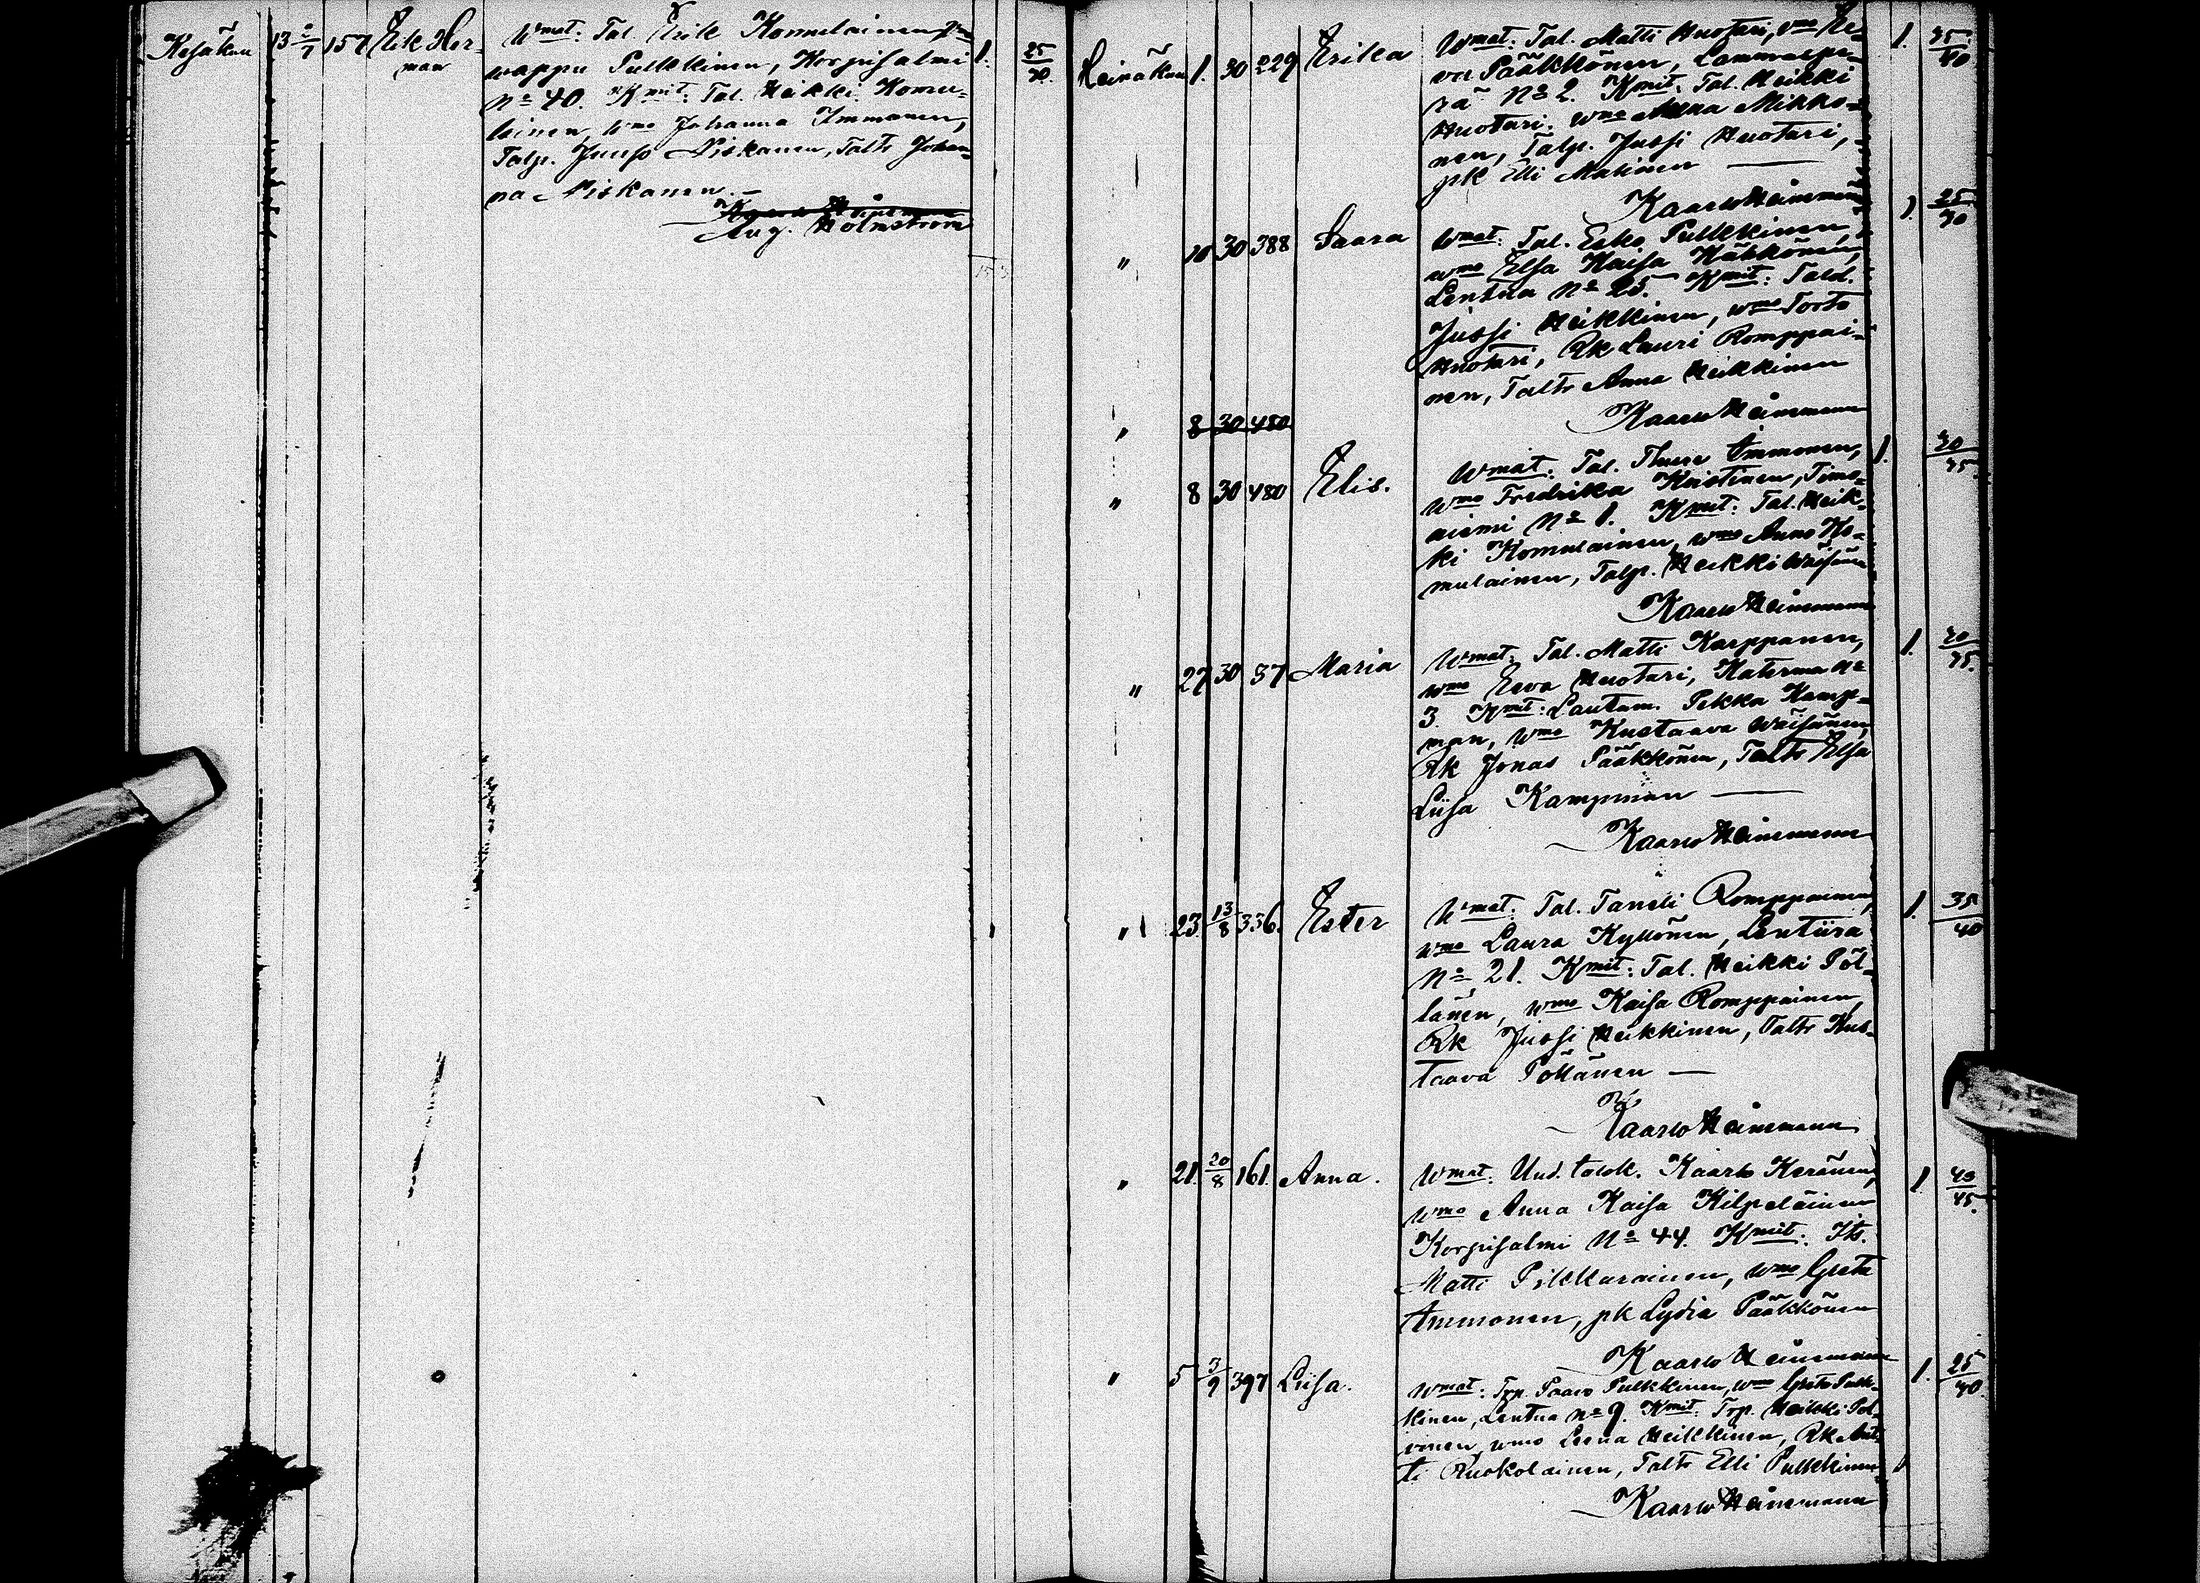 Kesäkuu 13 2/7 157 Erik Her-
man
Wmat: Tal. Erik Komulainen, wmo
wappu Pulkkinen, Korpisalmi
No 40. Kmit: Tal. Heikki Komu-
lainen, wmo Johanna Immonen,
Talp. Juuso Niskanen, Taltr Johan-
na Niskanen. —
Aug. Holmström
1. 25/30
Heinäkuu 1. 30 229 Erika
Wmat: Tal. Matti Huotari, wmo Ee-
va Pääkkönen, Lammaspe-
rä No 2. Kmit: Tal. Heikki
Huotari, wmo Anna Mikko-
nen, Talp. Jussi Huotari,
pk Elli Malinen —
Kaarlo Heinemann
1.
" 10 30 388 Saara
Wmat: Tal. Esko Pulkkinen,
wmo Elsa Kaisa Kähkönen,
Lentua No 25. Kmit: Tal.
Jussi Heikkinen, wmo
Huotari, Rk Lauri Romppai-
nen, Taltr Anna Heikkinen
Kaarlo Heinemann
1. 25/30
" 8 30 480
" 8 30 480 Elis.
Wmat: Tal. Ture Ammonen,
wmo Fredrika Huotinen, Timo-
niemi No 1. Kmit: Tal. Heik-
ki Komulainen, wmo Anna Ko-
mulainen, Talp. Heikki Wäisänen
Kaarlo Heinemann
1.
" 27 30 37 Maria
Wmat: Tal. Matti Karppanen,
wmo Eeva Huotari, Katerma No
3. Kmit: Lautam. Pekka Kamp-
man, wmo Kustaava Wäisänen,
Rk Jonas Pääkkönen, Taltr Elsa
Liisa Kampman —
Kaarlo Heinemann
1.
" 23 13/8 336. Ester
Wmat: Tal. Taneli Romppainen,
wmo Laura Kyllönen, Lentiira
No 21. Kmit: Tal. Heikki Pöl-
länen, wmo Kaisa Romppainen,
Rk Jussi Heikkinen, Taltr Kus-
taava Pöllänen —
Kaarlo Heinemann
1. 35/40
" 21. 20/8 161. Anna.
Wmat: Uud. talok. Kaarlo Keränen,
wmo Anna Kaisa Kilpeläinen
Korpisalmi No 44. Kmit: Its.
Matti Pikkarainen, wmo Greta
Ammonen, pk Lydia Pääkkönen
Kaarlo Heinemann
1. 40/45.
" 5 3/9 397 Liisa.
Wmat: Trp. Paavo Pulkkinen, wmo Greta Pulk-
kinen, Lentua No 9. Kmit: Trp. Heikki Pol-
vinen, wmo Leena Heikkinen, Rk Ant-
ti Ruokolainen, Taltr Elli Pulkkinen
Kaarlo Heinemann
1. 25/30